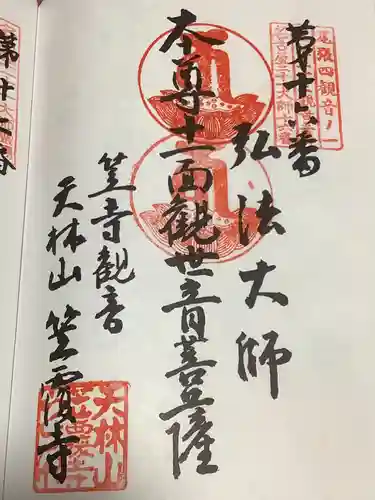 第十六番
尾張四観音ノ一
弘法大師
本尊十一面観世音菩薩
笠寺観音
天林山 笠覆寺